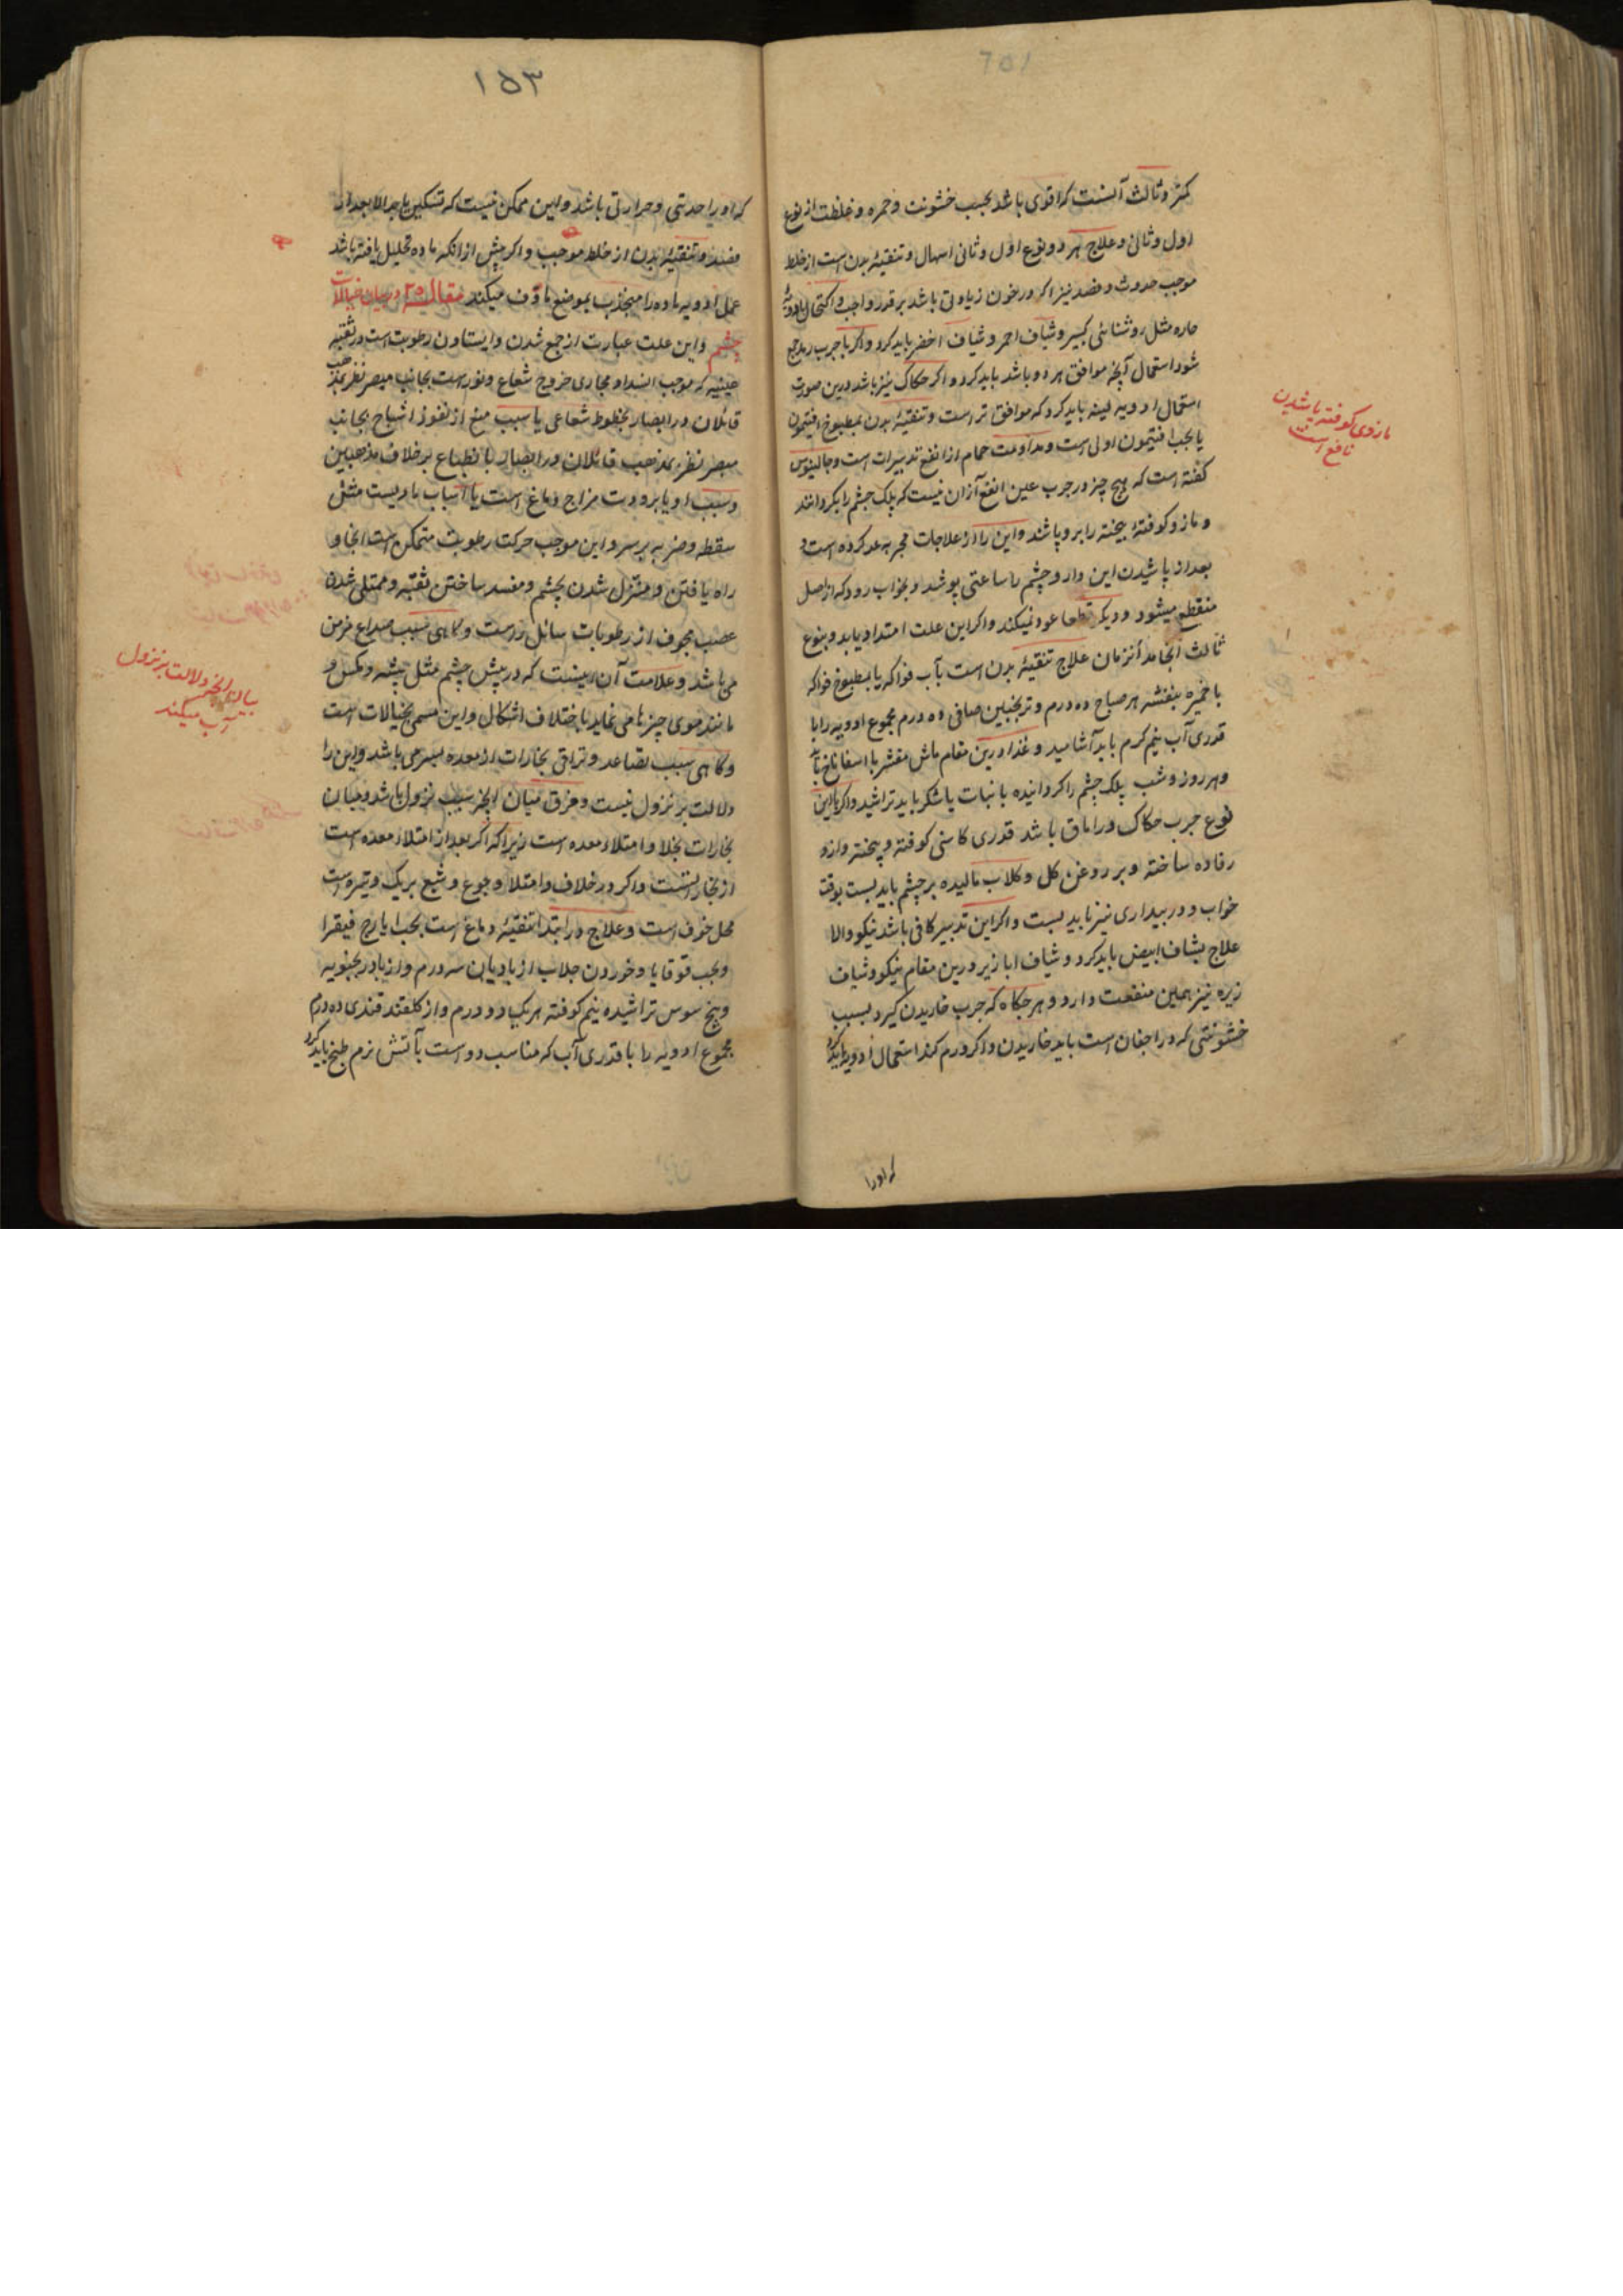 کمتر و ثالث آنست که اقوی باشد بحسب خشونت و حمره و غلظت از نوع
اول و ثانی و علاج هر دو نوع اول و ثانی اسهال و تنقیهٔ بدن است از خلط
موجب حدوث و فصد نیز اکر در خون زیادتی باشد بر قدر واجب و اکتحال بادویهٔ
حاره مثل روشنائی کبیر و شیاف احمر و شیاف اخضر باید کرد و اکر با جرب رمد جمع
شود استعمال آنچه موافق هر دو باشد باید کرد و اکر حکاک نیز باشد درین صورت
استعمال ادویه لینه باید کرد که موافق تر است و تنقیهٔ بدن بمطبوخ افتیمون
یا بحب افتیمون اولی است و مداومت حمام از انفع تدبیرات است و جالینوس
کفته است که هیچ چیز در جرب عین انفع ازان نیست که پلک چشم را بکردانند
و مازو کوفتهٔ بیخته را برو پاشند و این را از علاجات مجربه عد کرده است و
بعد از پاشیدن این دارو چشم را ساعتی پوشد و بخواب رود که از اصل
منقطع میشود و دیکر قطعا عود نمیکند و اکر این علت امتداد یابد و بنوع
ثالث انجامد آنزمان علاج تنقیهٔ بدن است بآب فواکه یا بمطبوخ فواکه
با خمیره بنفشه هر صباح ده درم و ترنجبین صافی ده درم مجموع ادویه را با
قدری آب نیم کرم باید آشامید و غذا درین مقام ماش مقشر با اسفاناخ باید
و هر روز و شب پلک چشم را کردانیده با نبات یا شکر باید تراشید و اکر با این
نوع جرب حکاک در اماق باشد قدری کاسنی کوفته و پخته و ازو
رفاده ساخته و بر روغن کل و کلاب مالیده بر چشم باید بست بوقت
خواب و در بیداری نیز باید بست و اکر این تدبیر کافی باشد نیکو والا
علاج بشاف ابیض باید کرد و شیاف ابازیر درین مقام نیکو و شیاف
زیره نیز همین منفعت دارد و هر جکاه که جرب خاریدن کیرد بسبب
خشونتی که در اجفان است باید خاریدن و اکر ورم کند استعمال ادویه باید کرد
که اورا
مازوی کوفته پاشیدن
نافع است
۱۵۳
که اورا حدتی و حرارتی باشد و این ممکن نیست که تسکین یابد الا بعد از
فصد و تنقیهٔ بدن از خلط موجب و اکر پیش از انکه ماده تحلیل یافته باشد
عمل ادویه ماده را منجذب بموضع ماؤف میکند مقاله ۲۵ در بیان خیالات
چشم و این علت عبارت از جمع شدن و ایستادن رطوبت است در ثقبه
عینیه که موجب انسداد مجاری خروج شعاع و نور است بجانب مبصر نظر بمذهب
قائلان در ابصار بخطوط شعاعی یا سبب منع از نفوذ اشباح بجانب
مبصر نظر بمذهب قائلان در ابصار بانطباع بر خلاف مذهبین
و سبب او یا برودت مزاج دماغ است یا اسباب بادیست مثل
سقطه و ضربه بر سر و این موجب حرکت رطوبت متمکن است انجا و
راه یافتن و متنزل شدن بچشم و مفسد ساختن ثقبه و ممتلی شدن
عصب مجوف از رطوبات سائل زرست و کاهی سبب صداع مزمن
می باشد و علامت آن اینست که در پیش چشم مثل پشه و مکس و
مانند موی چیزها می نماید باختلاف اشکال و این مسمی بخیالات است
و کاهی سبب تصاعد و تراقی بخارات از معده بسر می باشد و این را
دلالت بر نزول نیست و فرق میان انچه سبب نزول باشد و میان
بخارات بخلا و امتلاء معده است زیرا که اکر بعد از امتلاء معده است
از بخار آنست و اکر در خلاف و امتلا و جوع و شبع بریک وتیره است
محل خوف است و علاج در ابتدا تنقیهٔ دماغ است بحب ایارج فیقرا
و بحب قوقایا و خوردن جلاب از بادیان سه درم و از بادرنجبویه
و بیخ سوس تراشیده نیم کوفته هر یک دو درم و از کلقند قندی ده درم
مجموع ادویه را با قدری آب که مناسب دو است بآتش نرم طبخ باید کرد
بیان انچه دلالت بر نزول
آب میکند